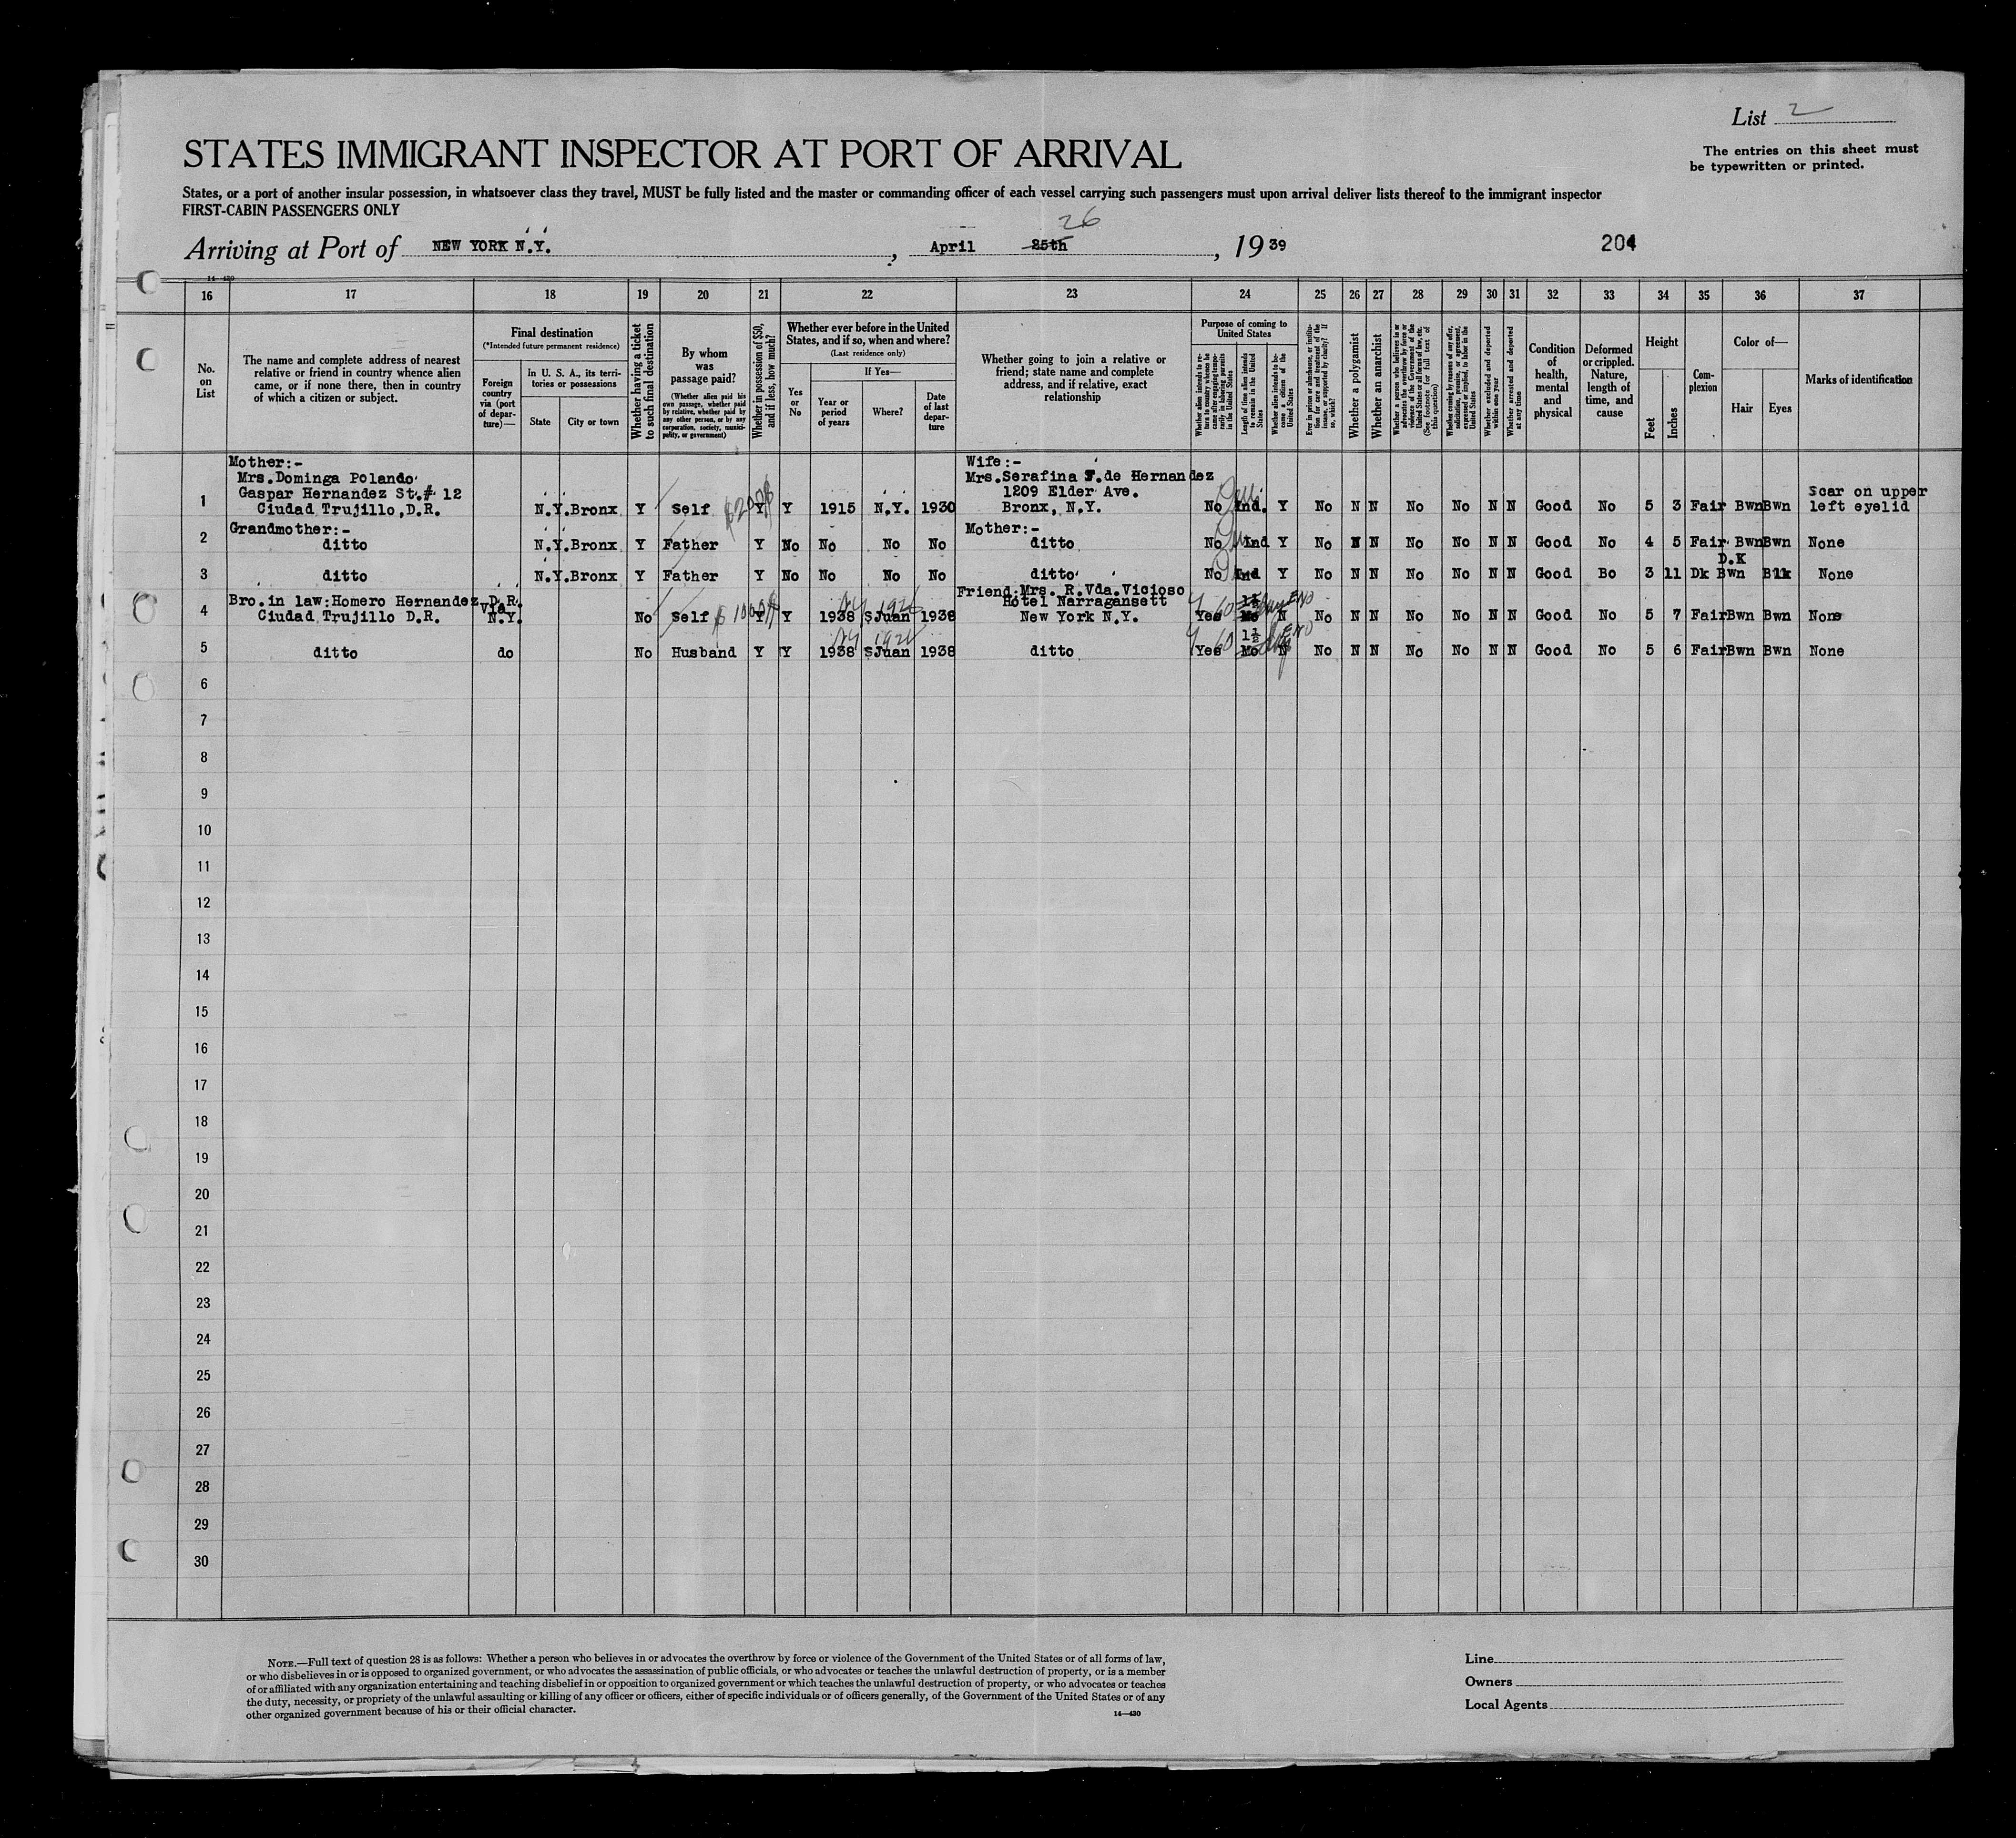 List 2
STATES IMMIGRANT INSPECTOR AT PORT OF ARRIVAL
The entries on this sheet must
be typewritten or printed.
States, or a port of another insular possession, in whatsoever class they travel, MUST be fully listed and the master or commanding officer of each vessel carrying such passengers must upon arrival deliver lists thereof to the immigrant inspector
FIRST-CABIN PASSENGERS ONLY
26
Arriving at Port of NEW YORK N.Y., April 25th, 1939 204
14—430
16 17 18 19 20 21 22 23 24 25 26 27 28 29 30 31 32 33 34 35 36 37
No. on List
The name and complete address of nearest
relative or friend in country whence alien
came, or if none there, then in country
of which a citizen or subject.
Final destination
(*Intended future permanent residence)
Foreign country via (port of departure)—
In U. S. A., its territories or possessions
State
City or town
Whether having a ticket to such final destination
By whom was passage paid?
(Whether alien paid his own passage, whether paid by relative, whether paid by any other person, or by any corporation, society, municipality, or government)
Whether in possession of $50, and if less, how much?
Whether ever before in the United
States, and if so, when and where?
(Last residence only)
Yes or No
If Yes—
Year or period of years
Where?
Date of last departure
Whether going to join a relative or
friend; state name and complete
address, and if relative, exact
relationship
Purpose of coming to United States
Whether alien intends to return to country whence he came after engaging temporarily in laboring pursuits in the United States
Length of time alien intends to remain in the United States
Whether alien intends to become a citizen of the United States
Ever in prison or almshouse, or institution for care and treatment of the insane, or supported by charity? If so, which?
Whether a polygamist
Whether an anarchist
Whether a person who believes in or advocates the overthrow by force or violence of the Government of the United States or all forms of law, etc. (See footnote for full text of this question)
Whether coming by reasons of any offer, solicitation, promise, or agreement, expressed or implied, to labor in the United States
Whether excluded and deported within one year
Whether arrested and deported at any time
Condition of health, mental and physical
Deformed or crippled. Nature, length of time, and cause
Height
Feet
Inches
Complexion
Color of—
Hair
Eyes
Marks of identification
Mother:- Wife:-
Mrs.Dominga Polando Mrs.Serafina de Hernandez
Gaspar Hernandez St.# 12 1209 Elder Ave. Scar on upper
1 Ciudad Trujillo,D.R. N.Y.Bronx Y Self $200 Y Y 1915 N.Y. 1930 Bronx, N.Y. No Ind. Y No N N No No N N Good No 5 3 Fair Bwn Bwn left eyelid
Grandmother:- Mother:-
2 ditto N.Y.Bronx Y Father Y No No No No ditto No Ind Y No N N No No N N Good No 4 5 Fair Bwn Bwn None
D.K
3 ditto N.Y.Bronx Y Father Y No No No No ditto No Ind Y No N N No No N N Good Bo 3 11 Dk Bwn Blk None
Bro.in law:Homero Hernandez D.R. Via. NY 1926 Friend:Mrs. R.Vda.Vicioso
Hotel Narragansett
4 Ciudad Trujillo D.R. N.Y. No Self $1000 Y Y 1938 SJuan 1938 New York N.Y. Yes 60 Mo N No N N No No N N Good No 5 7 Fair Bwn Bwn None
NY 1926 1½
5 ditto do No Husband Y Y 1938 SJuan 1938 ditto Yes 60 Mo N No N N No No N N Good No 5 6 Fair Bwn Bwn None
6
7
8
9
10
11
12
13
14
15
16
17
18
19
20
21
22
23
24
25
26
27
28
29
30
NOTE.—Full text of question 28 is as follows: Whether a person who believes in or advocates the overthrow by force or violence of the Government of the United States or of all forms of law,
or who disbelieves in or is opposed to organized government, or who advocates the assassination of public officials, or who advocates or teaches the unlawful destruction of property, or is a member
of or affiliated with any organization entertaining and teaching disbelief in or opposition to organized government or which teaches the unlawful destruction of property, or who advocates or teaches
the duty, necessity, or propriety of the unlawful assaulting or killing of any officer or officers, either of specific individuals or of officers generally, of the Government of the United States or of any
other organized government because of his or their official character.
14—430
Line
Owners
Local Agents